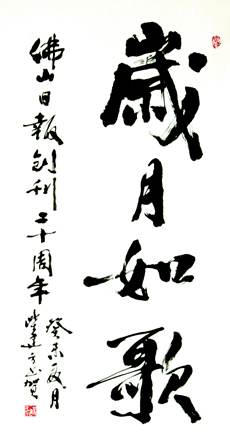 歲月如歌
佛山日報創刊二十周年
癸未夏月
賀